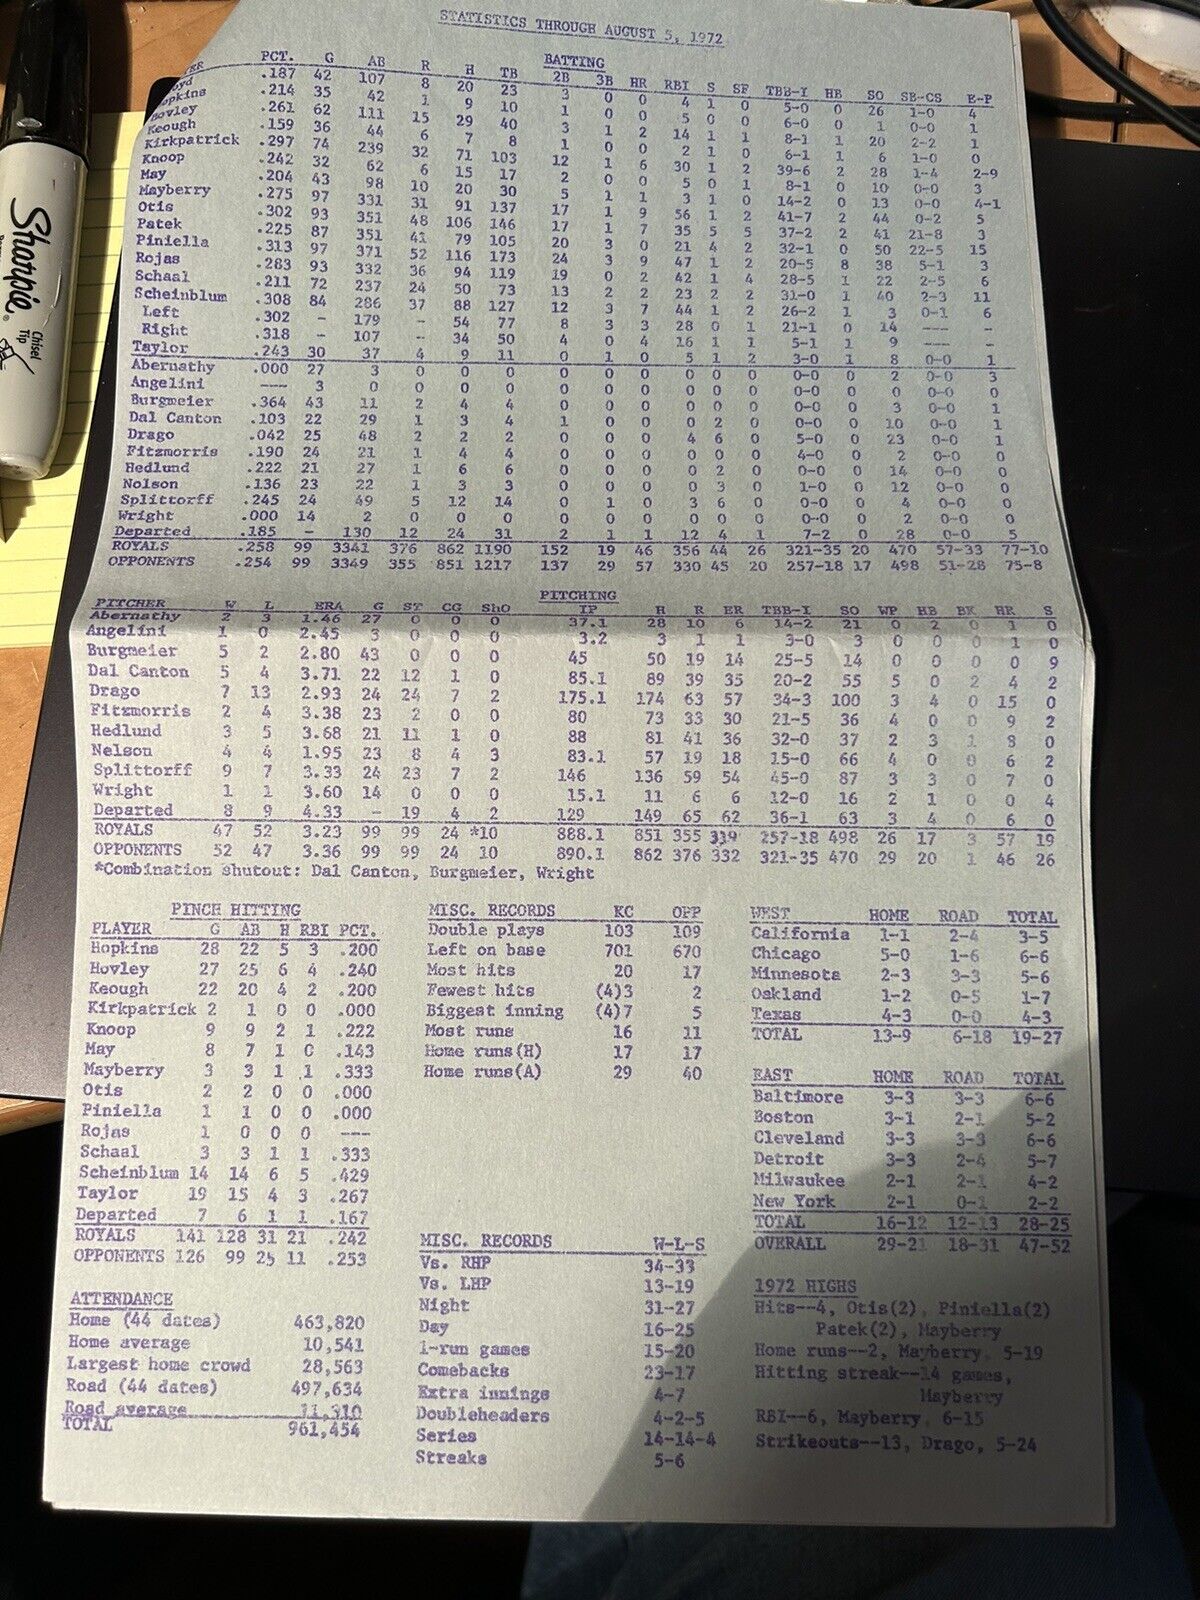 STATISTICS THROUGH AUGUST 5, 1972
BATTING
PCT. G AB R H TB 2B 3B HR RBI S SF TBB-I HB SO SB-CS E-P
.187 42 107 8 20 23 3 0 0 4 1 0 5-0 0 26 1-0 4
opkins .214 35 42 1 9 10 1 0 0 5 0 0 6-0 0 1 0-0 1
Hovley .261 62 111 15 29 40 3 1 2 14 1 1 8-1 1 20 2-2 1
Keough .159 36 44 6 7 8 1 0 0 2 1 0 6-1 1 6 1-0 0
Kirkpatrick .297 74 239 32 71 103 12 1 6 30 1 2 39-6 2 28 1-4 2-9
Knoop .242 32 62 6 15 17 2 0 0 5 0 1 8-1 0 10 0-0 3
May .204 43 98 10 20 30 5 1 1 3 1 0 14-2 0 13 0-0 4-1
Mayberry .275 97 331 31 91 137 17 1 9 56 1 2 41-7 2 44 0-2 5
Otis .302 93 351 48 106 146 17 1 7 35 5 5 37-2 2 41 21-8 3
Patek .225 87 351 41 79 105 20 3 0 21 4 2 32-1 0 50 22-5 15
Piniella .313 97 371 52 116 173 24 3 9 47 1 2 20-5 8 38 5-1 3
Rojas .283 93 332 36 94 119 19 0 2 42 1 4 28-5 1 22 2-5 6
Schaal .211 72 237 24 50 73 13 2 2 23 2 2 31-0 1 40 2-3 11
Scheinblum .308 84 286 37 88 127 12 3 7 44 1 2 26-2 1 3 0-1 6
Left .302 - 179 - 54 77 8 3 3 28 0 1 21-1 0 14 --- -
Right .318 - 107 - 34 50 4 0 4 16 1 1 5-1 1 9 --- -
Taylor .243 30 37 4 9 11 0 1 0 5 1 2 3-0 1 8 0-0 1
Abernathy .000 27 3 0 0 0 0 0 0 0 0 0 0-0 0 2 0-0 3
Angelini --- 3 0 0 0 0 0 0 0 0 0 0 0-0 0 0 0-0 0
Burgmeier .364 43 11 2 4 4 0 0 0 0 0 0 0-0 0 3 0-0 1
Dal Canton .103 22 29 1 3 4 1 0 0 0 2 0 0-0 0 10 0-0 1
Drago .042 25 48 2 2 2 0 0 0 4 6 0 5-0 0 23 0-0 1
Fitzmorris .190 24 21 1 4 4 0 0 0 0 0 0 4-0 0 2 0-0 0
Hedlund .222 21 27 1 6 6 0 0 0 0 2 0 0-0 0 14 0-0 0
Nolson .136 23 22 1 3 3 0 0 0 0 3 0 1-0 0 12 0-0 0
Splittorff .245 24 49 5 12 14 0 1 0 3 6 0 0-0 0 4 0-0 0
Wright .000 14 2 0 0 0 0 0 0 0 0 0 0-0 0 2 0-0 0
Departed .185 - 130 12 24 31 2 1 1 12 4 1 7-2 0 28 0-0 5
ROYALS .258 99 3341 376 862 1190 152 19 46 356 44 26 321-35 20 470 57-33 77-10
OPPONENTS .254 99 3349 355 851 1217 137 29 57 330 45 20 257-18 17 498 51-28 75-8
PITCHING
PITCHER W L ERA G ST CG ShO IP H R ER TBB-I SO WP HB BK HR S
Abernathy 2 3 1.46 27 0 0 0 37.1 28 10 6 14-2 21 0 2 0 1 0
Angelini 1 0 2.45 3 0 0 0 3.2 3 1 1 3-0 3 0 0 0 1 0
Burgmeier 5 2 2.80 43 0 0 0 45 50 19 14 25-5 14 0 0 0 0 9
Dal Canton 5 4 3.71 22 12 1 0 85.1 89 39 35 20-2 55 5 0 2 4 2
Drago 7 13 2.93 24 24 7 2 175.1 174 63 57 34-3 100 3 4 0 15 0
Fitzmorris 2 4 3.38 23 2 0 0 80 73 33 30 21-5 36 4 0 0 9 2
Hedlund 3 5 3.68 21 11 1 0 88 81 41 36 32-0 37 2 3 1 8 0
Nelson 4 4 1.95 23 8 4 3 83.1 57 19 18 15-0 66 4 0 0 6 2
Splittorff 9 7 3.33 24 23 7 2 146 136 59 54 45-0 87 3 3 0 7 0
Wright 1 1 3.60 14 0 0 0 15.1 11 6 6 12-0 16 2 1 0 0 4
Departed 8 9 4.33 - 19 4 2 129 149 65 62 36-1 63 3 4 0 6 0
ROYALS 47 52 3.23 99 99 24 *10 888.1 851 355 319 257-18 498 26 17 3 57 19
OPPONENTS 52 47 3.36 99 99 24 10 890.1 862 376 332 321-35 470 29 20 1 46 26
*Combination shutout: Dal Canton, Burgmeier, Wright
PINCH HITTING
PLAYER G AB H RBI PCT.
Hopkins 28 22 5 3 .200
Hovley 27 25 6 4 .240
Keough 22 20 4 2 .200
Kirkpatrick 2 1 0 0 .000
Knoop 9 9 2 1 .222
May 8 7 1 0 .143
Mayberry 3 3 1 1 .333
Otis 2 2 0 0 .000
Piniella 1 1 0 0 .000
Rojas 1 0 0 0 ---
Schaal 3 3 1 1 .333
Scheinblum 14 14 6 5 .429
Taylor 19 15 4 3 .267
Departed 7 6 1 1 .167
ROYALS 141 128 31 21 .242
OPPONENTS 126 99 25 11 .253
ATTENDANCE
Home (44 dates) 463,820
Home average 10,541
Largest home crowd 28,563
Road (44 dates) 497,634
Road average 11,310
TOTAL 961,454
MISC. RECORDS KC OPP
Double plays 103 109
Left on base 701 670
Most hits 20 17
Fewest hits (4)3 2
Biggest inning (4)7 5
Most runs 16 11
Home runs(H) 17 17
Home runs(A) 29 40
MISC. RECORDS W-L-S
Vs. RHP 34-33
Vs. LHP 13-19
Night 31-27
Day 16-25
1-run games 15-20
Comebacks 23-17
Extra innings 4-7
Doubleheaders 4-2-5
Series 14-14-4
Streaks 5-6
WEST HOME ROAD TOTAL
California 1-1 2-4 3-5
Chicago 5-0 1-6 6-6
Minnesota 2-3 3-3 5-6
Oakland 1-2 0-5 1-7
Texas 4-3 0-0 4-3
TOTAL 13-9 6-18 19-27
EAST HOME ROAD TOTAL
Baltimore 3-3 3-3 6-6
Boston 3-1 2-1 5-2
Cleveland 3-3 3-3 6-6
Detroit 3-3 2-4 5-7
Milwaukee 2-1 2-1 4-2
New York 2-1 0-1 2-2
TOTAL 16-12 12-13 28-25
OVERALL 29-21 18-31 47-52
1972 HIGHS
Hits--4, Otis(2), Piniella(2)
Patek(2), Mayberry
Home runs--2, Mayberry, 5-19
Hitting streak--14 games,
Mayberry
RBI--6, Mayberry, 6-15
Strikeouts--13, Drago, 5-24
Sharpie
Chisel
Tip